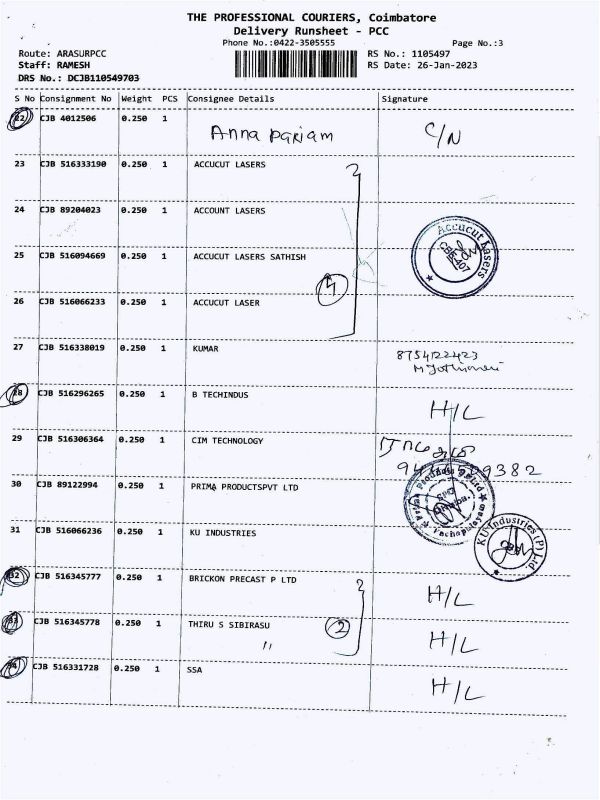 THE PROFESSIONAL COURIERS, Coimbatore
Delivery Runsheet - PCC
Phone No.:0422-3505555 Page No.:3
Route: ARASURPCC RS No.: 1105497
Staff: RAMESH RS Date: 26-Jan-2023
DRS No.: DCJB110549703
S No Consignment No Weight PCS Consignee Details Signature
22 CJB 4012506 0.250 1 Anna Pariam C/N
23 CJB 516333190 0.250 1 ACCUCUT LASERS
24 CJB 89204023 0.250 1 ACCOUNT LASERS
Accucut Lasers
25 CJB 516094669 0.250 1 ACCUCUT LASERS SATHISH
4
26 CJB 516066233 0.250 1 ACCUCUT LASER
27 CJB 516338019 0.250 1 KUMAR
28 CJB 516296265 0.250 1 B TECHINDUS H/L
29 CJB 516306364 0.250 1 CIM TECHNOLOGY
30 CJB 89122994 0.250 1 PRIMA PRODUCTSPVT LTD
31 CJB 516066236 0.250 1 KU INDUSTRIES
KU-Industries (P) Ltd
32 CJB 516345777 0.250 1 BRICKON PRECAST P LTD H/L
33 CJB 516345778 0.250 1 THIRU S SIBIRASU 2 H/L
"
34 CJB 516331728 0.250 1 SSA H/L